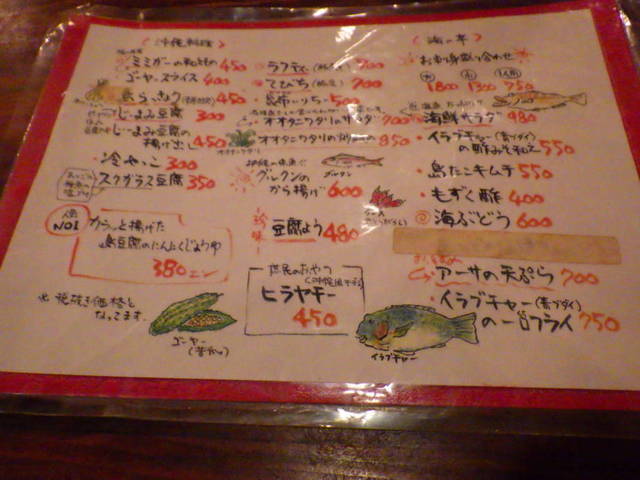 〈沖縄料理〉
ミミガーの和えもの 450
ゴーヤースライス 400
島らっきょう 450
じーまみ豆腐 300
じーまみ豆腐の
揚げ出し 450
冷やっこ 300
スクガラス豆腐 350
人気
NO1
カラッと揚げた
島豆腐のにんにくじょうゆ
380
※税抜き価格と
なってます。
ゴーヤー
ラフティ 700
てびち 700
昆布いりちー 500
オオタニワタリのサラダ 700
オオタニワタリの 850
オオタニワタリ
グルクンの
から揚げ 600
グルクン
珍味
豆腐よう 480
庶民のおやつ
ヒラヤチー
450
〈海の幸〉
お刺身盛り合わせ
大 小 1人前
1800 1300 750
海鮮サラダ 980
イラブチャー(青ブダイ)
の酢みそ和え 550
島たこキムチ 550
もずく酢 400
海ぶどう 600
アーサの天ぷら 700
イラブチャー(青ブダイ)
の一口フライ 750
イラブチャー